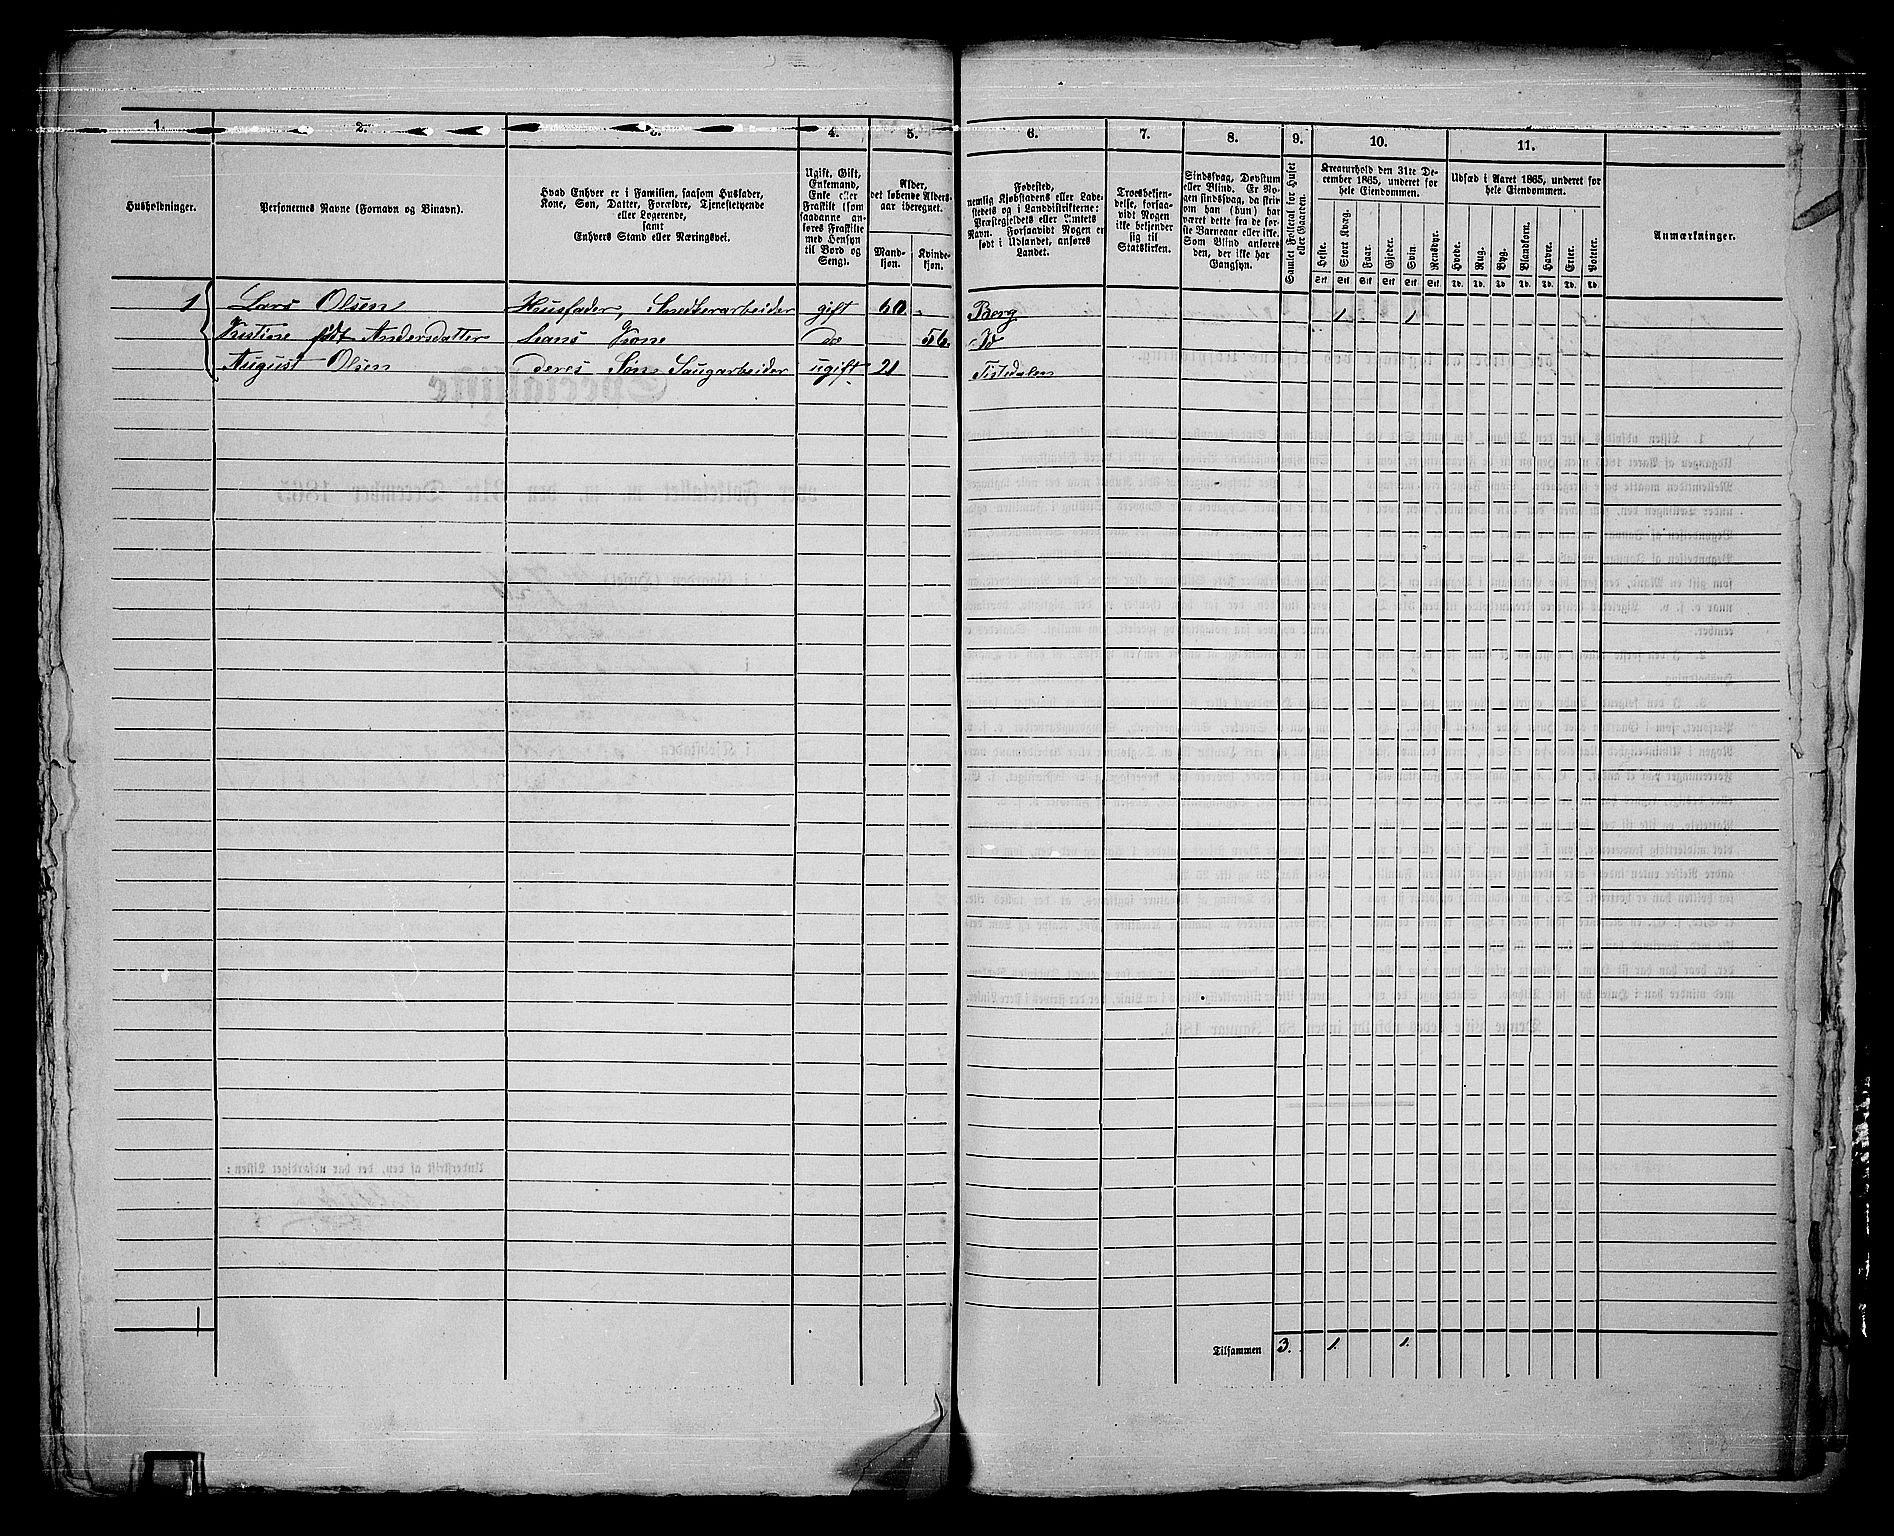 1. 2. 3. 4. 5. 6. 7. 8. 9. 10. 11.
Husholdninger.
Personernes Navne (Fornavn og Binavn).
Hvad Enhver er i Familien, saasom Husfader,
Kone, Søn, Datter, Forældre, Tjenestetyende
eller Logerende,
samt
Enhvers Stand eller Næringsvei.
Ugift, Gift,
Enkemand,
Enke eller
Fraskilt (som
saadanne an-
føres Fraskilte
med Hensyn
til Bord og
Seng).
Alder,
det løbende Alders-
aar iberegnet.
Mand-
kjøn.
Kvinde-
kjøn.
Fødested,
nemlig Kjøbstadens eller Lade-
stedets og i Landdistrikterne:
Præstegjeldets eller Amtets
Navn. Forsaavidt Nogen er
født i Udlandet, anføres
Landet.
Troesbekjen-
delse, forsaa-
vidt Nogen
ikke bekjender
sig til
Statskirken.
Sindssvag, Døvstum
eller Blind. Er No-
gen sindssvag, da skriv
om han (hun) har
været dette fra de før-
ste Barneaar eller ikke.
Som Blind anføres
den, der ikke har
Gangsyn.
Samlet Folketal for Huset
eller Gaarden.
Kreaturhold den 31te De-
cember 1865, underet for
hele Eiendommen.
Heste. Stort Kvæg. Faar. Gjeder. Svin. Rensdyr.
Stk Stk Stk Stk Stk Stk.
Udsæd i Aaret 1865, underet for
hele Eiendommen.
Hvede. Rug. Byg. Blandkorn. Havre. Erter. Poteter.
Td. Td. Td. Td. Td. Td. Td.
Anmærkninger.
1 Lars Olsen Husfader, Snedkerarbeider gift 60 Berg 1 1
Kristine født Andersdatter hans Kone do 56 Id
August Olsen deres Søn Saugarbeider ugift 21 Tistedalen
1
Tilsammen 3. 1. 1.